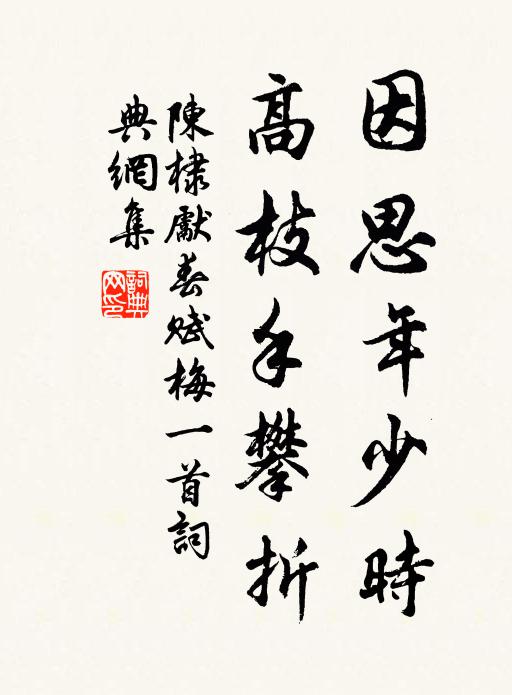 因思年少時
高枝手攀折
陳棣獻春賦梅一首詞
典網集
詞典
网印